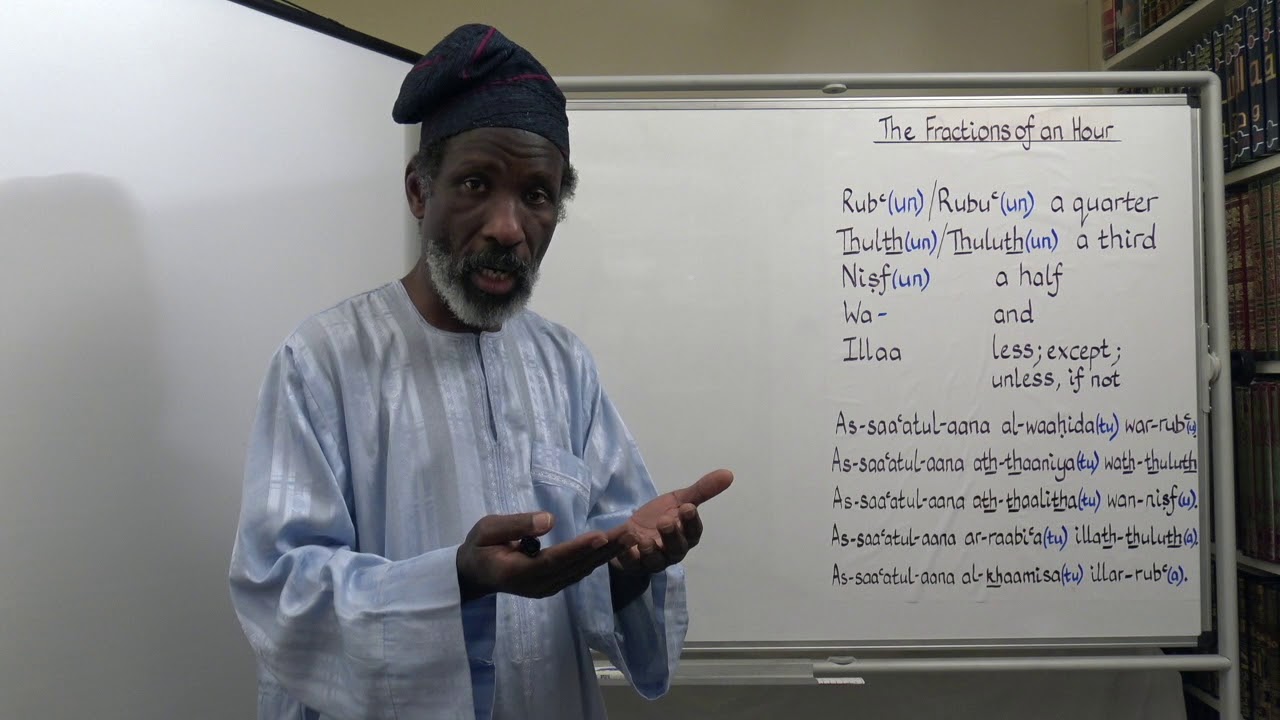 The Fractions of an Hour
Rubᶜ(un)/Rubuᶜ(un) a quarter
Thulth(un)/Thuluth(un) a third
Niṣf(un) a half
Wa- and
Illaa less; except;
unless, if not
As-saaᶜatul-aana al-waaḥida(tu) war-rubᶜ(u).
As-saaᶜatul-aana ath-thaaniya(tu) wath-thuluth
As-saaᶜatul-aana ath-thaalitha(tu) wan-niṣf(u).
As-saaᶜatul-aana ar-raabiᶜa(tu) illath-thuluth(a).
As-saaᶜatul-aana al-khaamisa(tu) illar-rubᶜ(a).